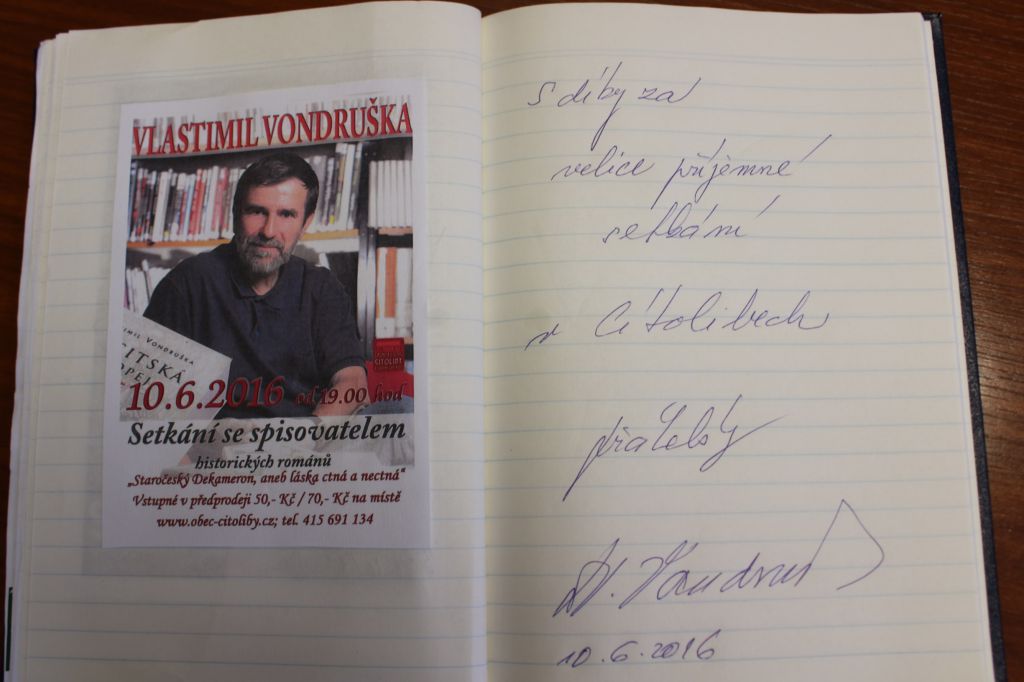 VLASTIMIL VONDRUŠKA
VLASTIMIL VONDRUŠKA
10.6.2016 od 19.00 hod
Setkání se spisovatelem
historických románů
„Staročeský Dekameron, aneb láska ctná a nectná“
Vstupné v předprodeji 50,- Kč / 70,- Kč na místě
www.obec-citoliby.cz; tel. 415 691 134
CITOLIBY
S díky za
velice příjemné
setkání
v Citolibech
přátelsky
Vl. Vondruš
10.6.2016